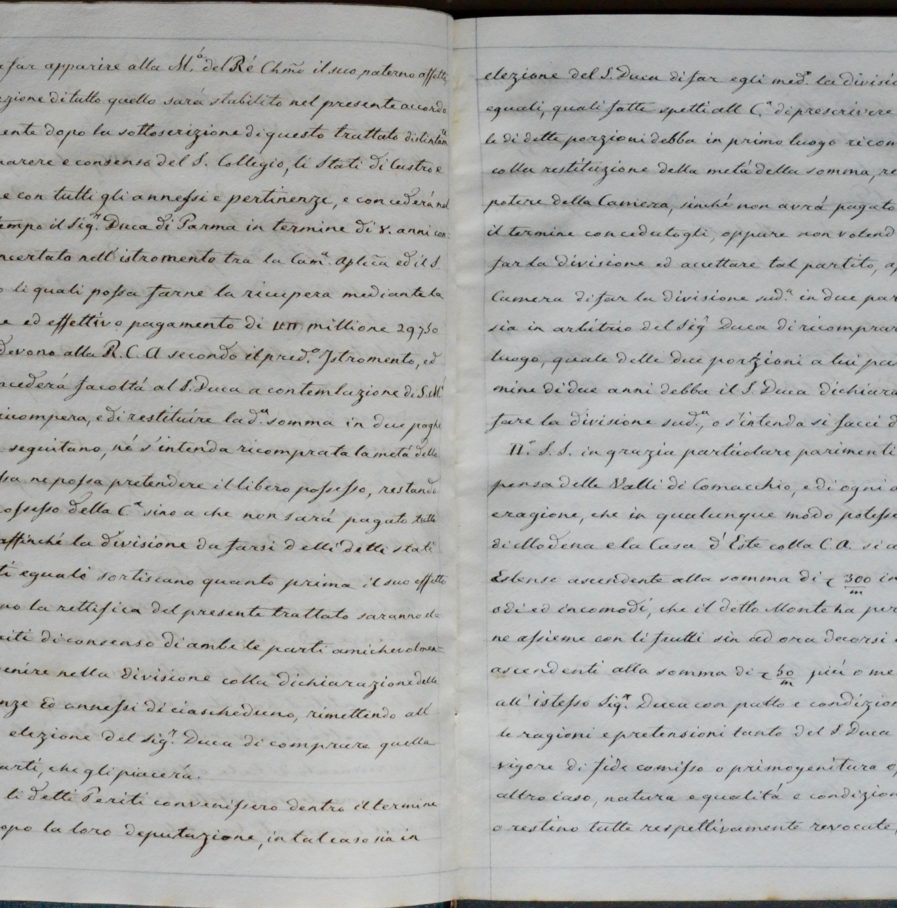 far apparire alla M.ᵗᵃ del Ré Chmo il suo paterno affetto
zione di tutto quello sará stabilito nel presente accordo
ente dopo la sottoscrizione di questo trattato
parere e consenso del S. Collegio, li Stati di Castro e
e con tutti gli annessi e pertinenze, e concederá nel
tempo il Sig.ʳ Duca di Parma in termine di 8. anni con
ncertato nell'istromento tra la Cam.ᵃ Aplica ed il S.
o li quali possa farne la ricupera mediante la
e ed effettivo pagamento di millione 29750
devono alla R. C. A secondo il pred.º Istromento, ed
cederá facoltá al S. Duca a contemlazione di S. M.
ricompera, e di restituire la d.ᵃ somma in due paghe
seguitano, né s'intenda ricomprata la metá della
ssa ne possa pretendere il libero possesso, restando
possesso della C.ᵃ sino a che non sará pagato tutto
affinché la divisione da farsi delli detti stati
ti eguali sortiscano quanto prima il suo effetto
no la rettifica del presente trattato saranno de
riti di consenso di ambe le parti amichevolmen-
venire nella divisione colla dichiarazione delle
nze ed annessi di ciascheduno, rimettendo all'
elezione del Sig.ʳ Duca di comprare quella
parti, che gli piacerá.
li detti Periti convenissero dentro il termine
opo la loro deputazione, in tal caso sia in
elezione del S. Duca di far egli med.º la divisio
eguali, quali fatte spetti all C.ᵃ di prescrivere
le di dette porzioni debba in primo luogo ricom
colla restituzione della metá della somma, re
potere della Camera, sinché non avrá pagato
il termine concedutogli, oppure non volend
far la divisione ed accettare tal partito, a
Camera di far la divisione sud.ᵃ in due par
sia in arbitrio del Sig.ʳ Duca di ricomprar
luogo, quale delle due porzioni a lui pa
mine di due anni debba il S. Duca dichiara
fare la divisione sud.ᵃ, o s'intenda si facci d
II.º S. S. in grazia particolare parimenti
pensa delle Valli di Comacchio, e di ogni a
eragione, che in qualunque modo potesse
di Modena e la Casa d'Este colla C. A. si a
Estense ascendente alla somma di 300/m in
odi ed incomodi, che il detto Monte ha per
ne assieme con li frutti sin ad ora decorsi
ascendenti alla somma di 50/m piú o me
all'istesso Sig.ʳ Duca con patto e condizion
le ragioni e pretensioni tanto del S Duca
vigore di fide comisso o primogenitura o
altro caso, natura e qualitá e condizion
o restino tutte respettivamente revocate,